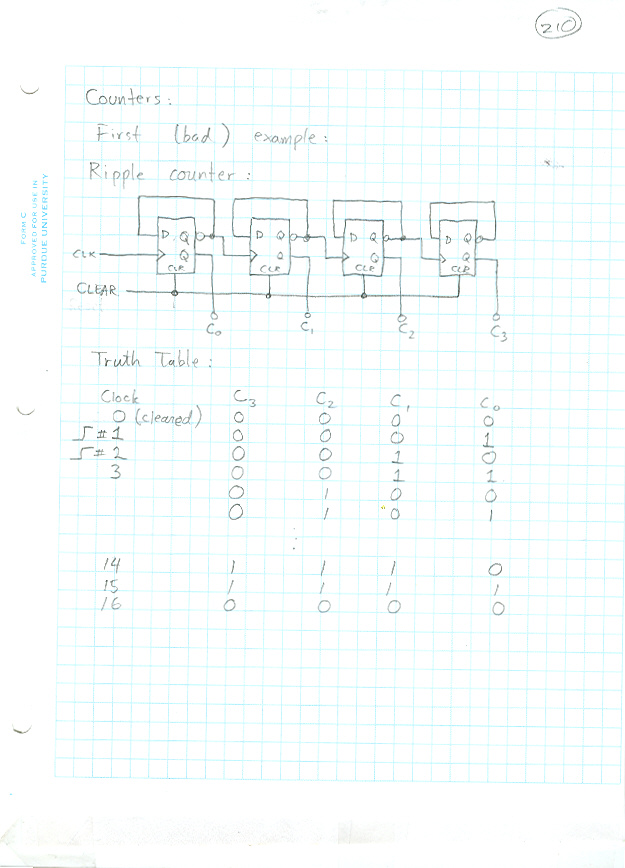 210
Counters:
First (bad) example:
Ripple counter:
FORM C
APPROVED FOR USE IN
PURDUE UNIVERSITY
D Q D Q D Q D Q
CLK Q Q Q Q
CLR CLR CLR CLR
CLEAR
C₀ C₁ C₂ C₃
Truth Table:
Clock C₃ C₂ C₁ C₀
0 (cleared) 0 0 0 0
#1 0 0 0 1
#2 0 0 1 0
3 0 0 1 1
0 1 0 0
0 1 0 1
⋮
14 1 1 1 0
15 1 1 1 1
16 0 0 0 0